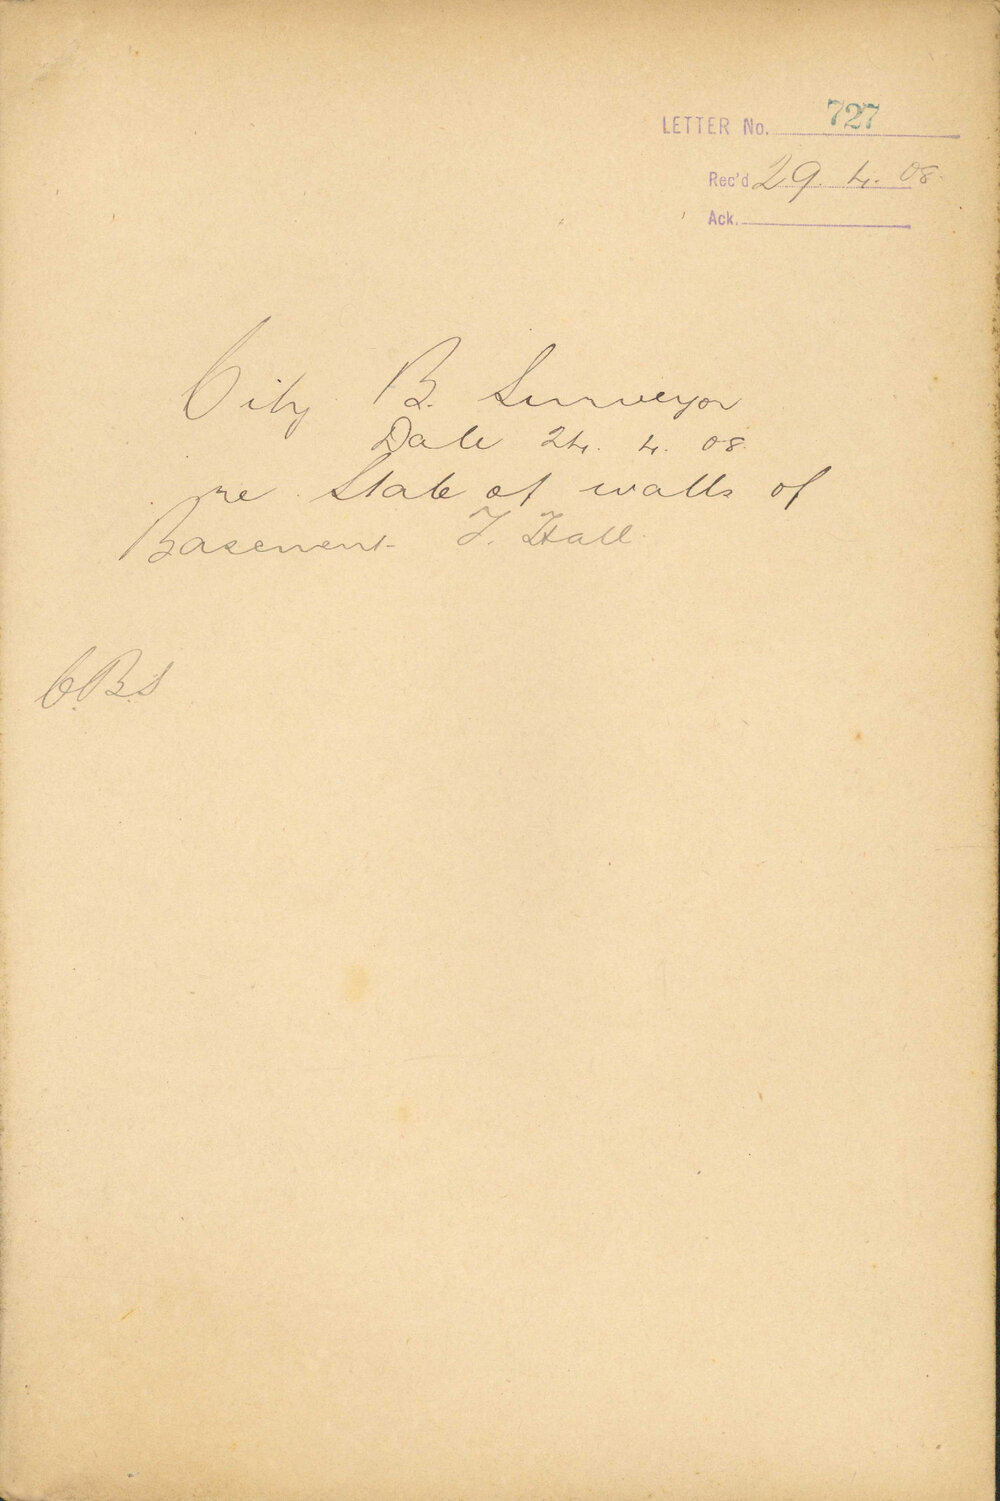 LETTER No. 727
Rec'd 29. 4. 08.
Ack.
City B. Surveyor
Date 24. 4. 08.
re State of walls of
Basement T. Hall.
C.B.S